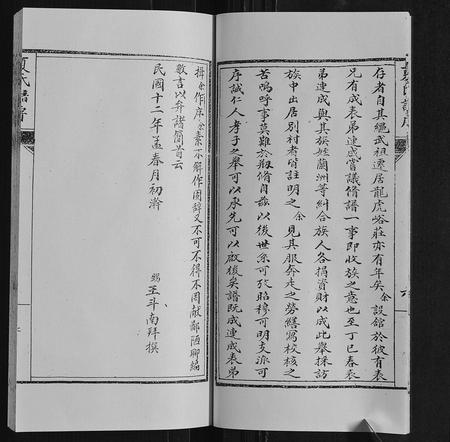 存者自其繩武祖遷居龍虎峪莊亦有年矣余設館於彼有表
兄有成表弟連成嘗議脩譜一事即收族之意也至丁巳春表
弟連成與其族姪蘭洲等糾合族人各捐資財以成此舉採訪
族中出居別村者皆註明之余見其服奔走之勞繕寫校核之
苦嗚呼事莫難於叙脩自茲以後世系可攷昭穆可明支派可
序誠仁人孝子之舉可以承先可以啟後矣譜既成連成表弟
揖余作序余素不解作固辭又不可不得不罔獻鄙陋聊編
數言以弁諸簡首云
民國十二年孟春月初瀚
賜王斗南拜撰
氏譜序